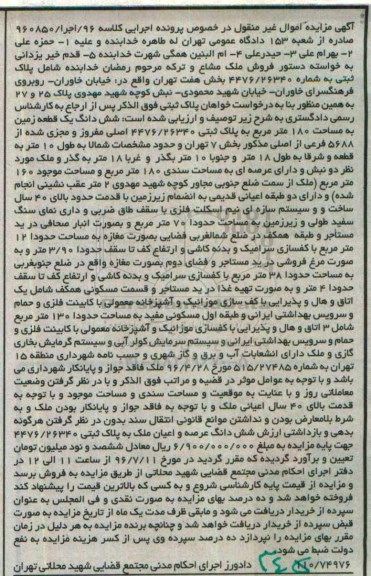 آگهی مزایده اموال غیر منقول در خصوص پرونده اجرایی کلاسه ۹۶/اجرا/۹۶۰۸۵۰
صادره از شعبه ۱۵۳ دادگاه عمومی تهران له طاهره خدابنده و علیه ۱- حمزه علی
۲- بهرام علی ۳- حیدرعلی ۴- ام البنین همگی شهرت خدابنده ۵- قدم خیر یزدانی
به خواسته دستور فروش ملک مشاع و ترکه مرحوم رمضان خدابنده شامل پلاک
ثبتی به شماره ۴۴۷۶/۲۶۳۴۰ بخش هفت تهران واقع در: خیابان خاوران- روبروی
فرهنگسرای خاوران- خیابان شهید محمودی- نبش کوچه شهید مهدوی پلاک ۲۵ و ۲۷
به همین منظور بنا به درخواست خواهان پلاک ثبتی فوق الذکر پس از ارجاع به کارشناس
رسمی دادگستری به شرح زیر توصیف و ارزیابی شده است: شش دانگ یک قطعه زمین
به مساحت ۱۸۰ متر مربع به پلاک ثبتی ۴۴۷۶/۲۶۳۴۰ اصلی مفروز و مجزی شده از
۵۶۸۸ فرعی از اصلی مذکور بخش ۷ تهران و حدود مشخصات شمالا به طول ۱۰ متر به
قطعه و شرقا به طول ۱۸ متر و جنوبا ۱۰ متر بگذر و غربا ۱۸ متر به گذر و ملک مورد
نظر دو نبش و دارای عرصه ای به مساحت سندی ۱۸۰ متر مربع و مساحت موجود ۱۶۰
متر مربع (ملک از سمت ضلع جنوبی مجاور کوچه شهید مهدوی ۲ متر عقب نشینی انجام
شده) و دارای دو طبقه اعیانی قدیمی به انضمام زیرزمین با قدمت حدود بالای ۴۰ سال
ساخت و و سیستم سازه ای نیم اسکلت فلزی با سقف طاق ضربی و دارای نمای سنگ
سفید طولی و زیرزمین به مساحت حدودا ۷۰ متر مربع و بصورت انبار مصالحی در ید
مستأجر و طبقه همکف در ضلع شمالغربی فضایی بصورت مغازه به مساحت حدودا ۱۲
متر مربع با کفسازی سرامیک و بدنه کاشی و ارتفاع کف تا سقف حدودا ۳/۹۰ متر و به
صورت مرغ فروشی در ید مستاجر و فضای دوم بصورت مغازه واقع در ضلع جنوبغربی
به مساحت حدودا ۳۸ متر مربع با کفسازی سرامیک و بدنه کاشی و ارتفاع کف تا سقف
حدودا ۴ متر و به صورت تهیه غذا در ید مستاجر و قسمت مسکونی همکف شامل یک
اتاق و هال و پذیرایی با کف سازی موزائیک و آشپزخانه معمولی با کابینت فلزی و حمام
و سرویس بهداشتی ایرانی و طبقه اول مسکونی مفید به مساحت حدودا ۱۳۰ متر مربع
شامل ۳ اتاق و هال و پذیرایی با کفسازی موزائیک و آشپزخانه معمولی با کابینت فلزی و
حمام و سرویس بهداشتی ایرانی و سیستم سرمایش کولر آبی و سیستم گرمایش بخاری
گازی و ملک دارای انشعابات آب و برق و گاز شهری و حسب نامه شهرداری منطقه ۱۵
تهران به شماره ۵۱۵/۲۷۴۸۵ مورخ ۹۶/۴/۲۸ ملک فاقد جواز و پایانکار شهرداری می
باشد و با توجه به عوامل موثر در قضیه و مراتب فوق الذکر و با در نظر گرفتن وضعیت
معاملاتی روز و با عنایت به موقعیت و مساحت سندی و مساحت موجود و با توجه به
قدمت بالای ۴۰ سال اعیانی ملک و با توجه به فاقد جواز و پایانکار بودن ملک و به
شرط بلامعارض بودن و نداشتن موانع قانونی انتقال سند بدون در نظر گرفتن هرگونه
بدهی و بازداشتی ارزش شش دانگ عرصه و اعیان ملک به پلاک ثبتی ۴۴۷۶/۲۶۳۴۰
جهت پایه مزایده به مبلغ ۶/۹۰۰/۰۰۰/۰۰۰ ریال معادل ششصد و نود میلیون تومان
تعیین و برآورد گردیده که مقرر گردید در مورخ ۹۶/۷/۱۱ از ساعت ۱۱ الی ۱۲ در
دفتر اجرای احکام مدنی مجتمع قضایی شهید محلاتی از طریق مزایده به فروش برسد
و مزایده از قیمت پایه کارشناسی شروع و به کسی که بالاترین قیمت را پیشنهاد کند
فروخته خواهد شد و ده درصد بهای مزایده به صورت نقدی و فی المجلس به عنوان
سپرده از خریدار دریافت می شود و مابقی ظرف مدت یک ماه از تاریخ مزایده به صورت
قبض سپرده از خریدار دریافت خواهد شد و چنانچه برنده مزایده به هر دلیل در زمان
مقرر بهای مزایده را نپردازد ده درصد سپرده وی پس از کسر هزینه مزایده به نفع
دولت ضبط می شود.
۱۱۰/۷۴۹۷۶ دادورز اجرای احکام مدنی مجتمع قضایی شهید محلاتی تهران